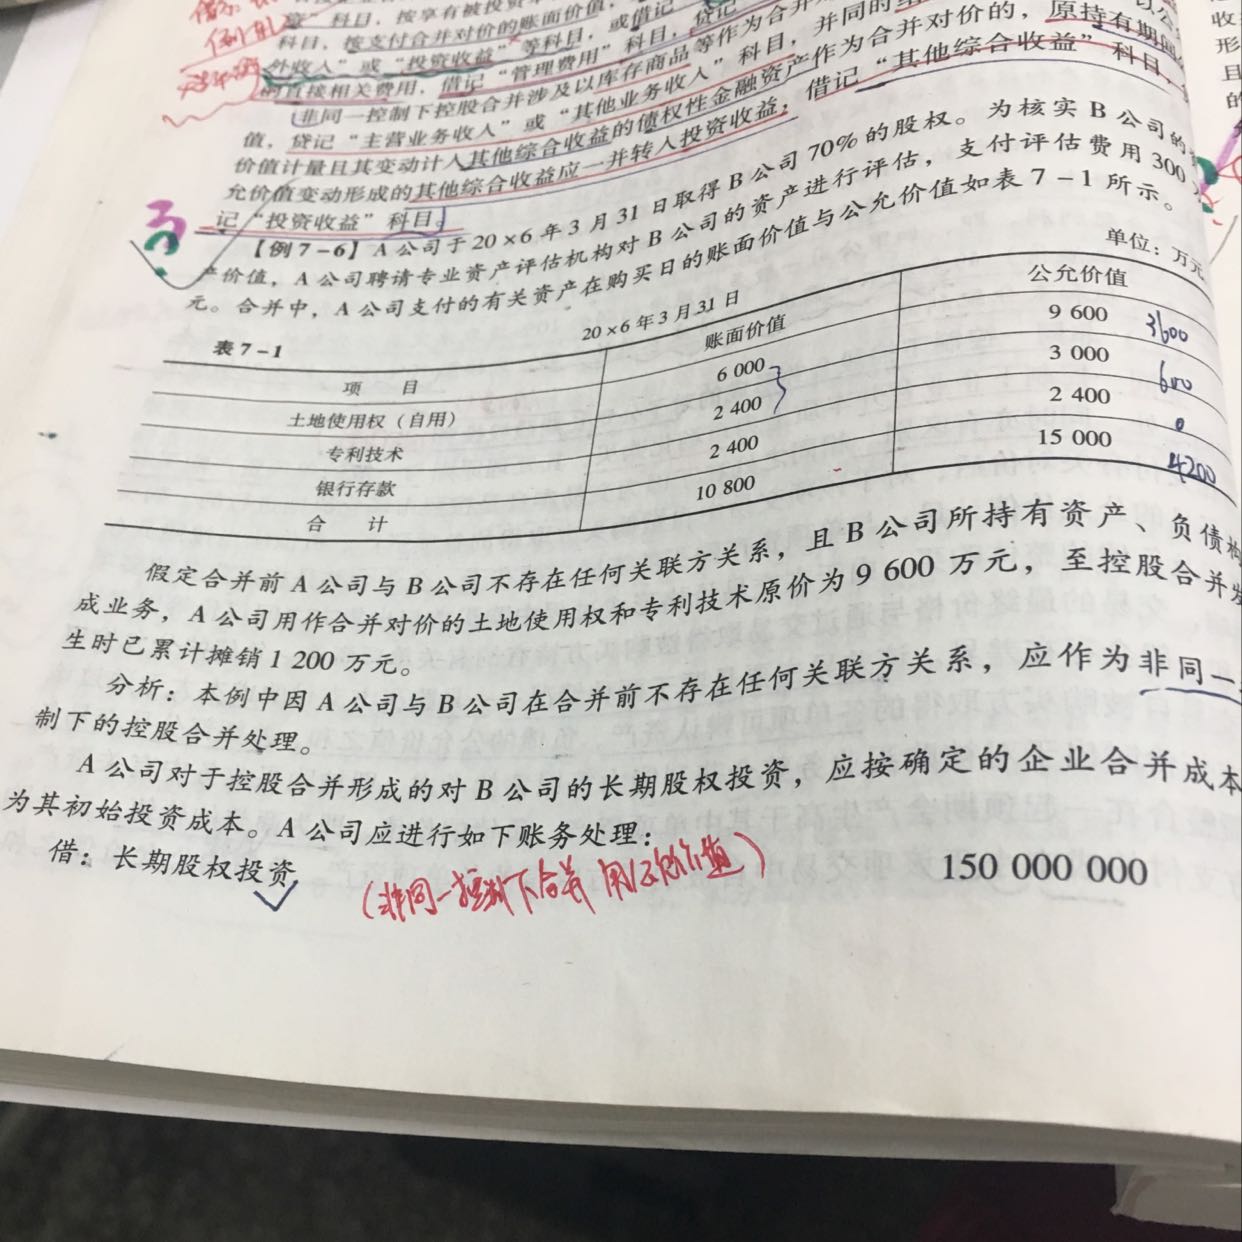 科目，按享有被投资
科目，按支付合并对价的账面价值，
外收入”或“投资收益”等科目，或借记
的直接相关费用，借记“管理费用”科目，贷记
非同一控制下控股合并涉及以库存商品等作为合并
值，贷记“主营业务收入”或“其他业务收入”科目，并同时
价值计量且其变动计入其他综合收益的债权性金融资产作为合并对价的，原持有期间
允价值变动形成的其他综合收益应一并转入投资收益，借记“其他综合收益”科目，
记“投资收益”科目。
【例7-6】A公司于20×6年3月31日取得B公司70%的股权。为核实B公司的
产价值，A公司聘请专业资产评估机构对B公司的资产进行评估，支付评估费用300
元。合并中，A公司支付的有关资产在购买日的账面价值与公允价值如表7-1所示。
表7-1 20×6年3月31日 单位：万元
项 目 账面价值 公允价值
土地使用权（自用） 6 000 9 600 3600
专利技术 2 400 3 000 600
银行存款 2 400 2 400 0
合 计 10 800 15 000 4200
假定合并前A公司与B公司不存在任何关联方关系，且B公司所持有资产、负债构
成业务，A公司用作合并对价的土地使用权和专利技术原价为9 600万元，至控股合并发
生时已累计摊销1 200万元。
分析：本例中因A公司与B公司在合并前不存在任何关联方关系，应作为非同一
制下的控股合并处理。
A公司对于控股合并形成的对B公司的长期股权投资，应按确定的企业合并成本
为其初始投资成本。A公司应进行如下账务处理：
借：长期股权投资 150 000 000
（非同一控制下合并 用公允价值）